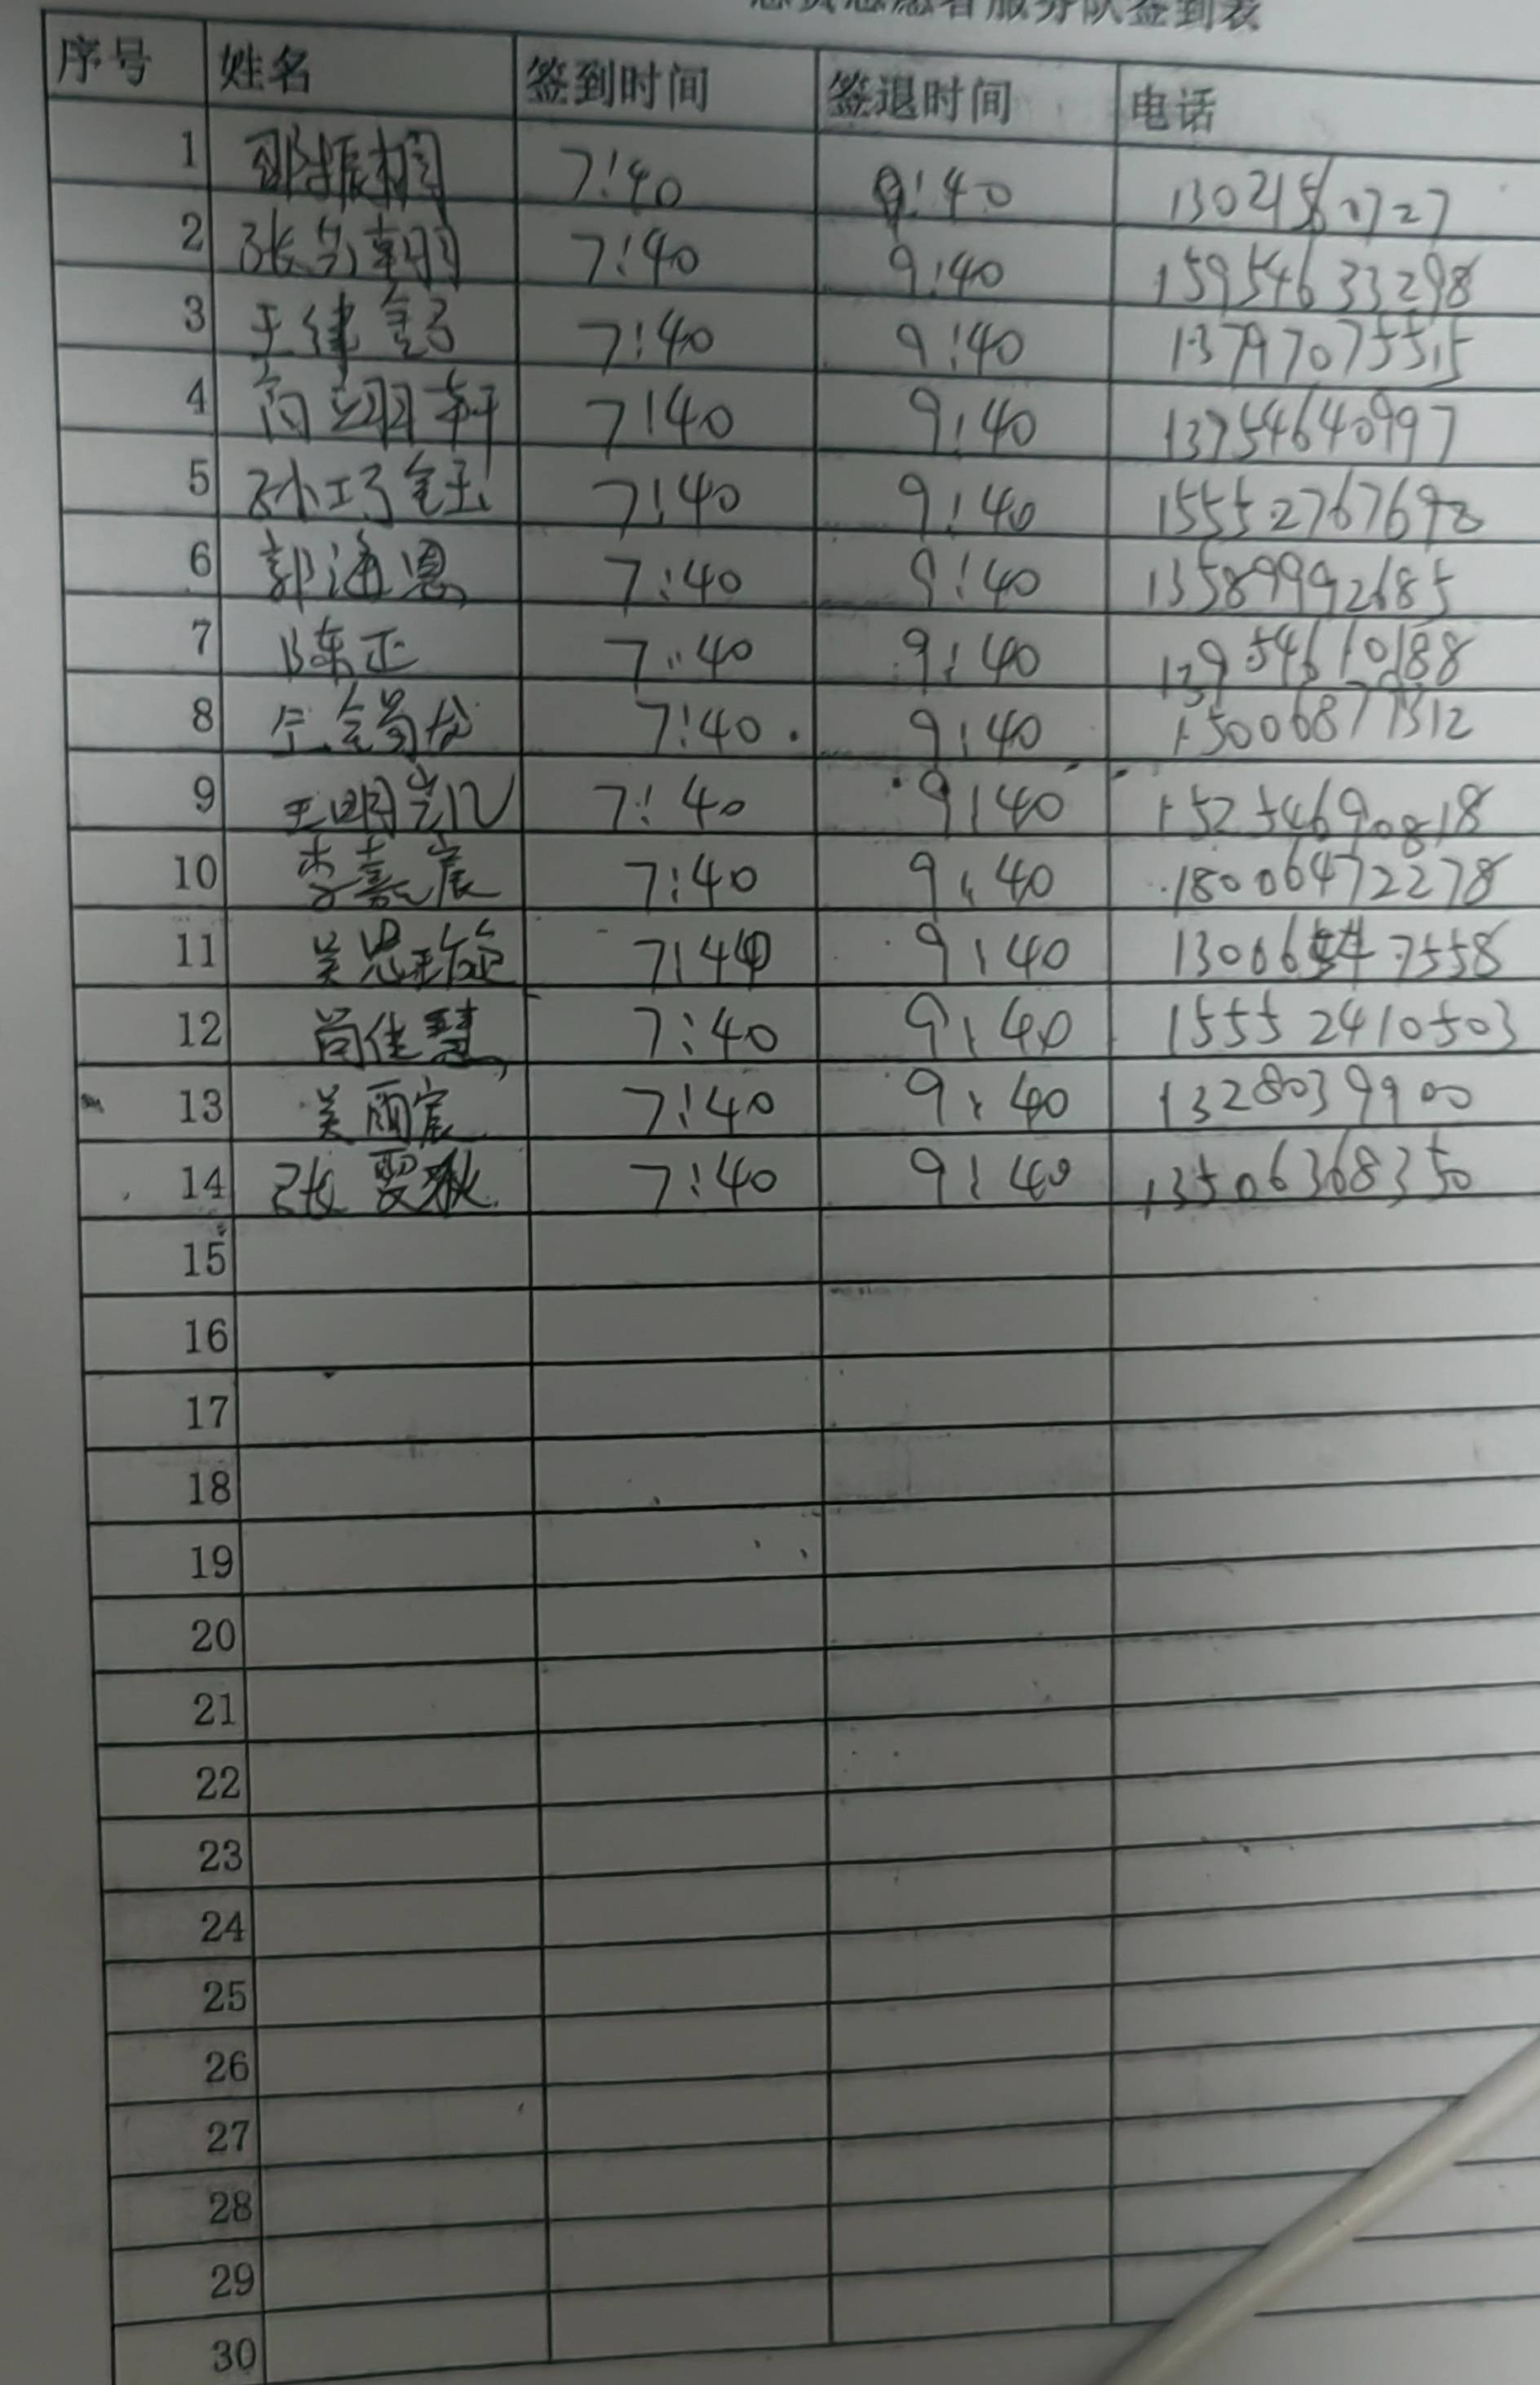 服务队签到表
序号 姓名 签到时间 签退时间 电话
1 7:40 9:40 13021560727
2 张 朝 7:40 9:40 15954633298
3 王建 7:40 9:40 13797075515
4 高翊轩 7:40 9:40 13754640997
5 孙巧钰 7:40 9:40 15552767698
6 郭海恩 7:40 9:40 13589992685
7 陈正 7:40 9:40 13954610188
8 7:40 9:40 15006877312
9 王明 7:40 9:40 15254690818
10 李嘉宸 7:40 9:40 18006472278
11 吴思瑜 7:40 9:40 13006547558
12 尚佳慧 7:40 9:40 15552410503
13 吴雨宸 7:40 9:40 1328039900
14 张雯 7:40 9:40 13506368350
15
16
17
18
19
20
21
22
23
24
25
26
27
28
29
30